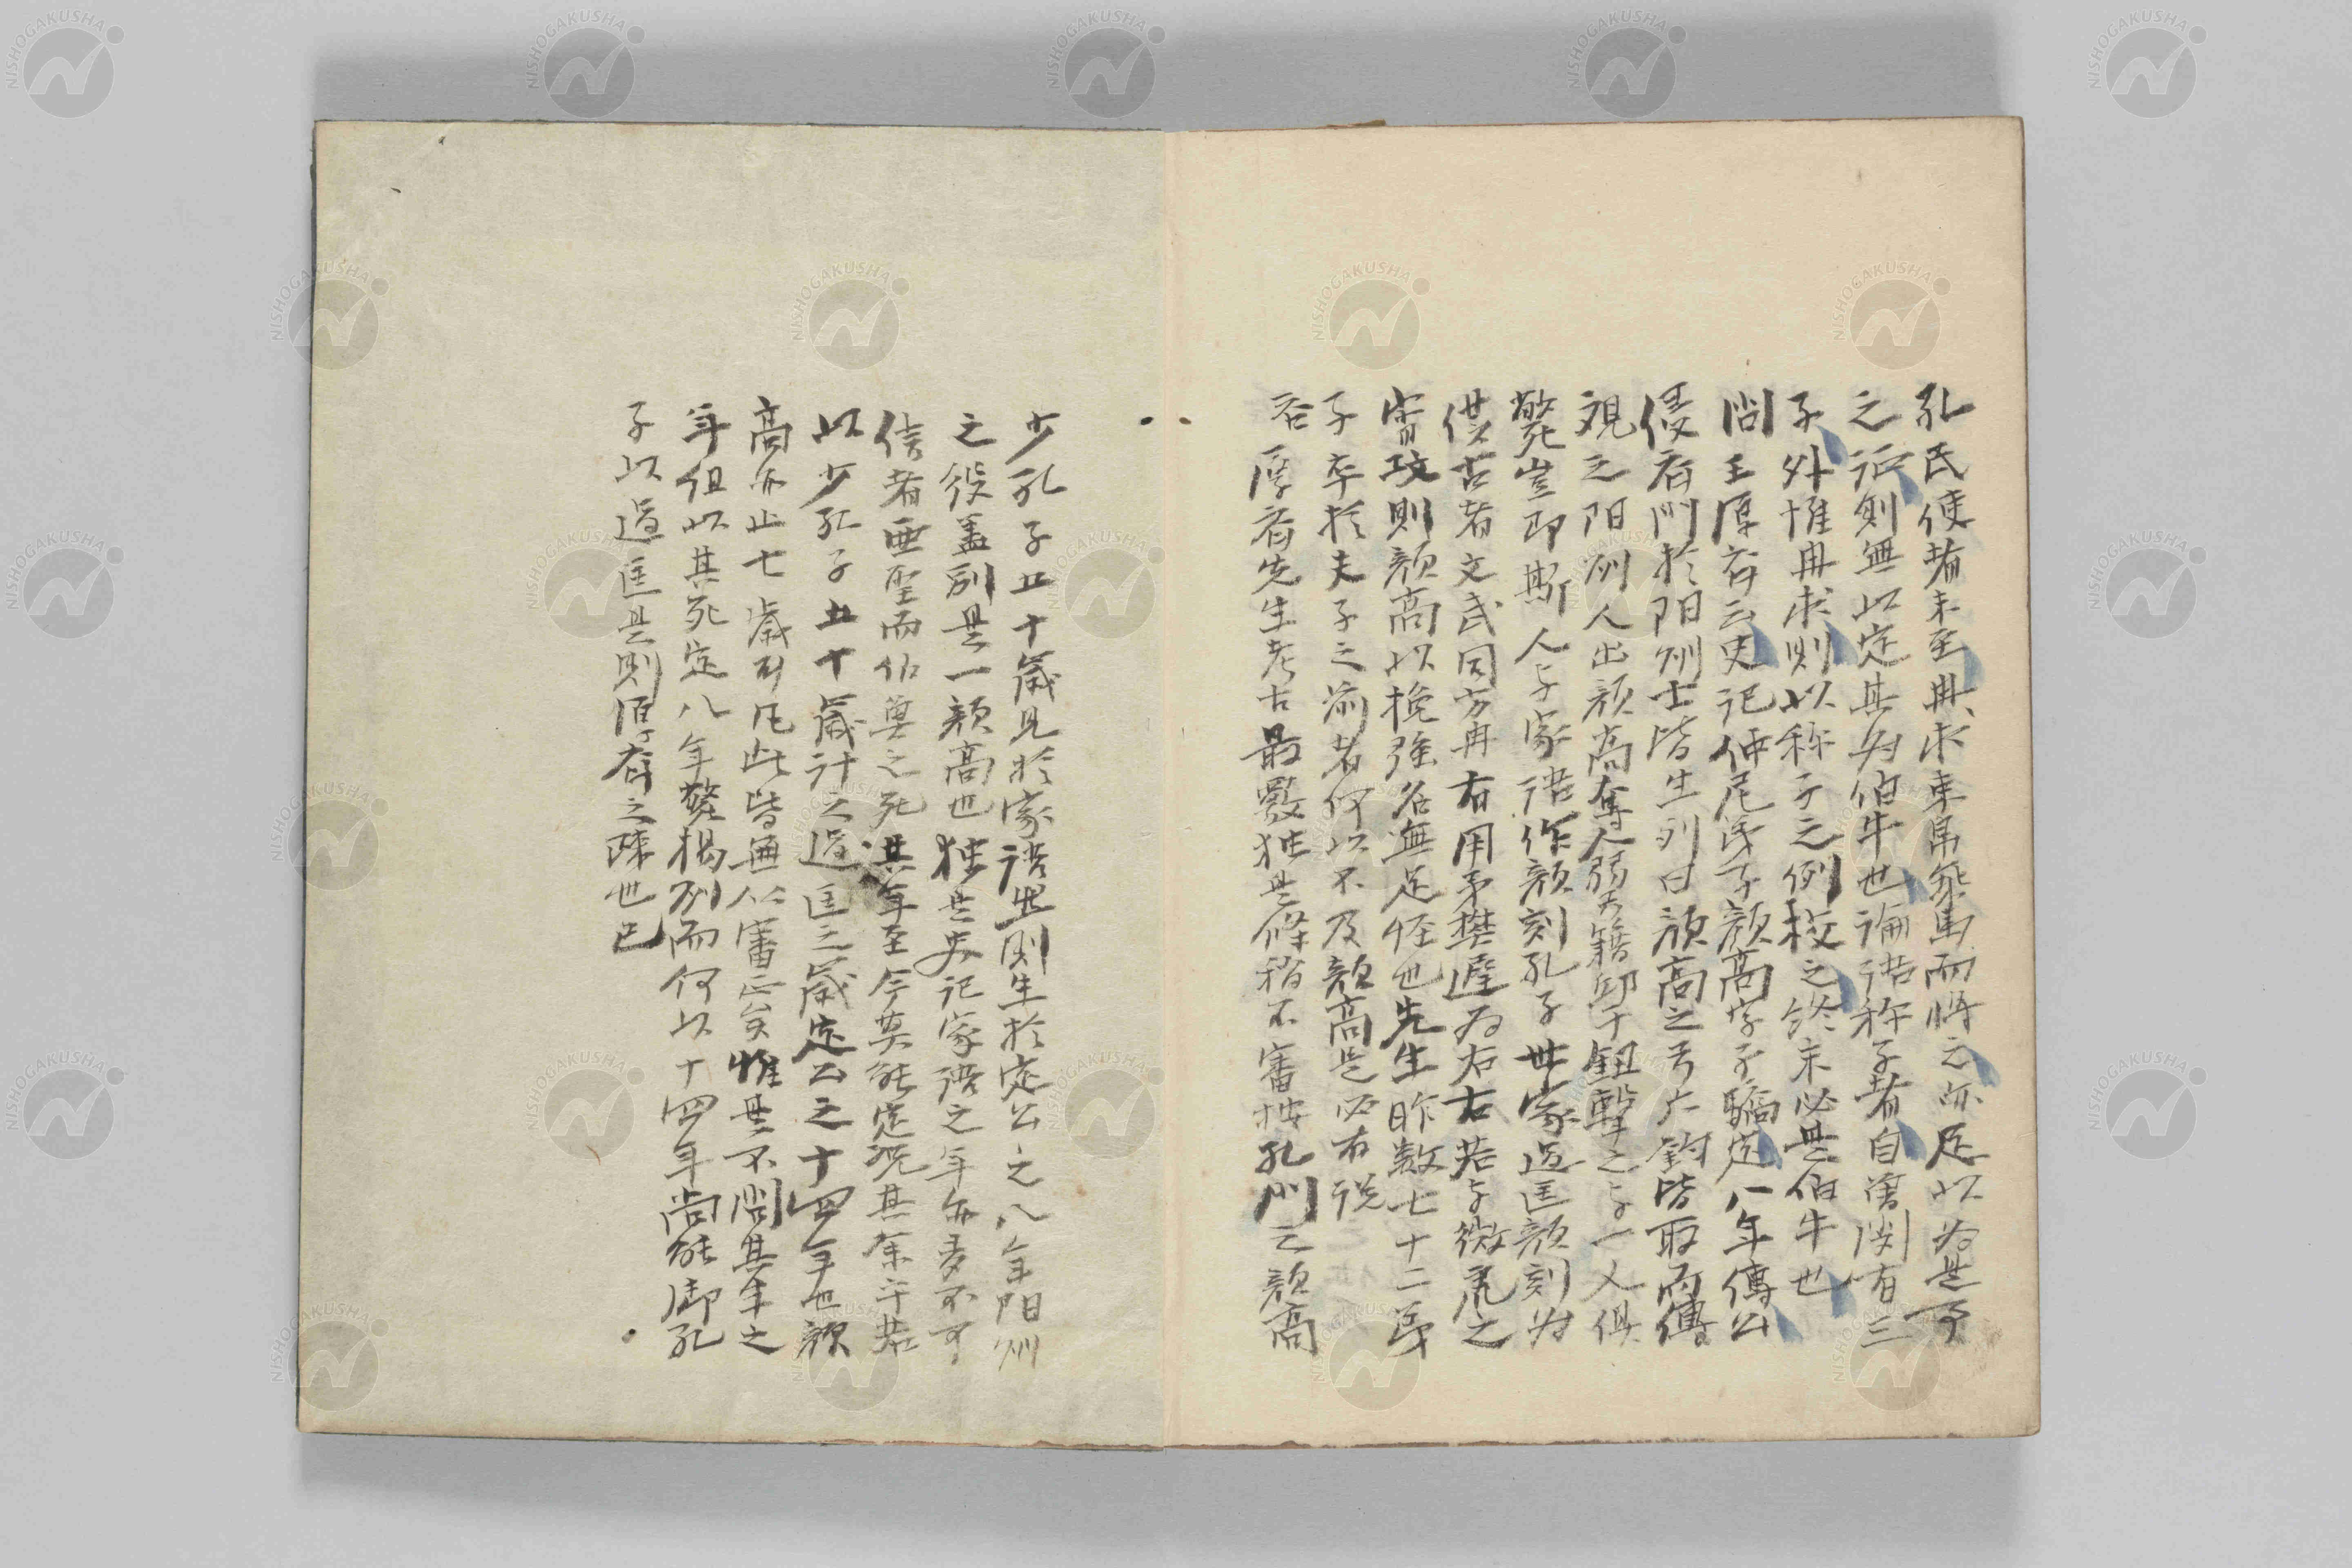 孔氏使者未至冉求束帛乗馬而將之亦足以為是乎
之証則無以定其為伯牛也論語称子者自曽閔有三
子外惟冉求則以称子之例校之終未必是伯牛也
問王厚斎云史記仲尼弟子顔高字子驕定八年傳公
侵斉門於陽州士皆坐列曰顔高之弓六鈞皆取而傳
観之陽州人出顔高奪人弱弓籍丘子鉏撃之与一人俱
斃豈即斯人与家語作顔刻孔子世家過匡顔刻為
僕古者文武同方冉有用矛樊遅為右有若与微虎之
宵攻則顔高以挽強名無足怪也先生昨数七十二弟
子卒於夫子之前者何以不及顔高是必有説
答厚斎先生考古最覈独是條稍不審按孔門之顔高
少孔子五十歳見於家語出則生於定公之八年陽州
之役蓋別是一顔高也独是史記家語之年亦多不可
信者亜聖而伯魚之死其年至今莫能定況其余乎若
以少孔子五十歳計之過匡之歳定公之十四年也顔
高亦止七歳耳凡此皆無以審正矣惟是不問其年之
年但以其死定八年斃陽州而何以十四年尚能御孔
子以過匡是則厚斎之疎也已
NISHOGAKUSHA